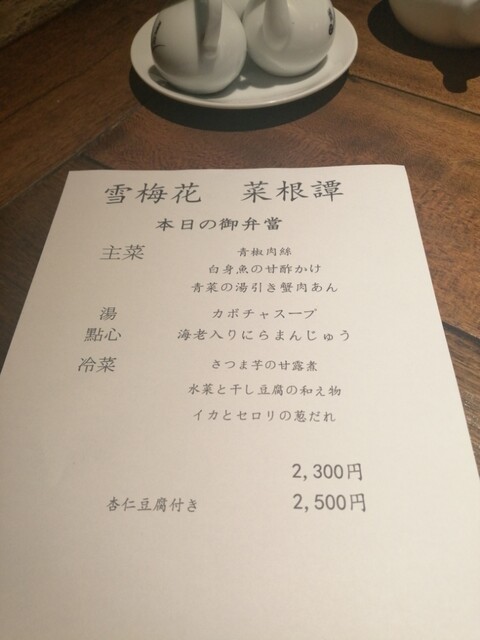 雪梅花 菜根譚
本日の御弁當
主菜 青椒肉絲
白身魚の甘酢かけ
青菜の湯引き蟹肉あん
湯 カボチャスープ
點心 海老入りにらまんじゅう
冷菜 さつま芋の甘露煮
水菜と干し豆腐の和え物
イカとセロリの葱だれ
2,300円
杏仁豆腐付き 2,500円